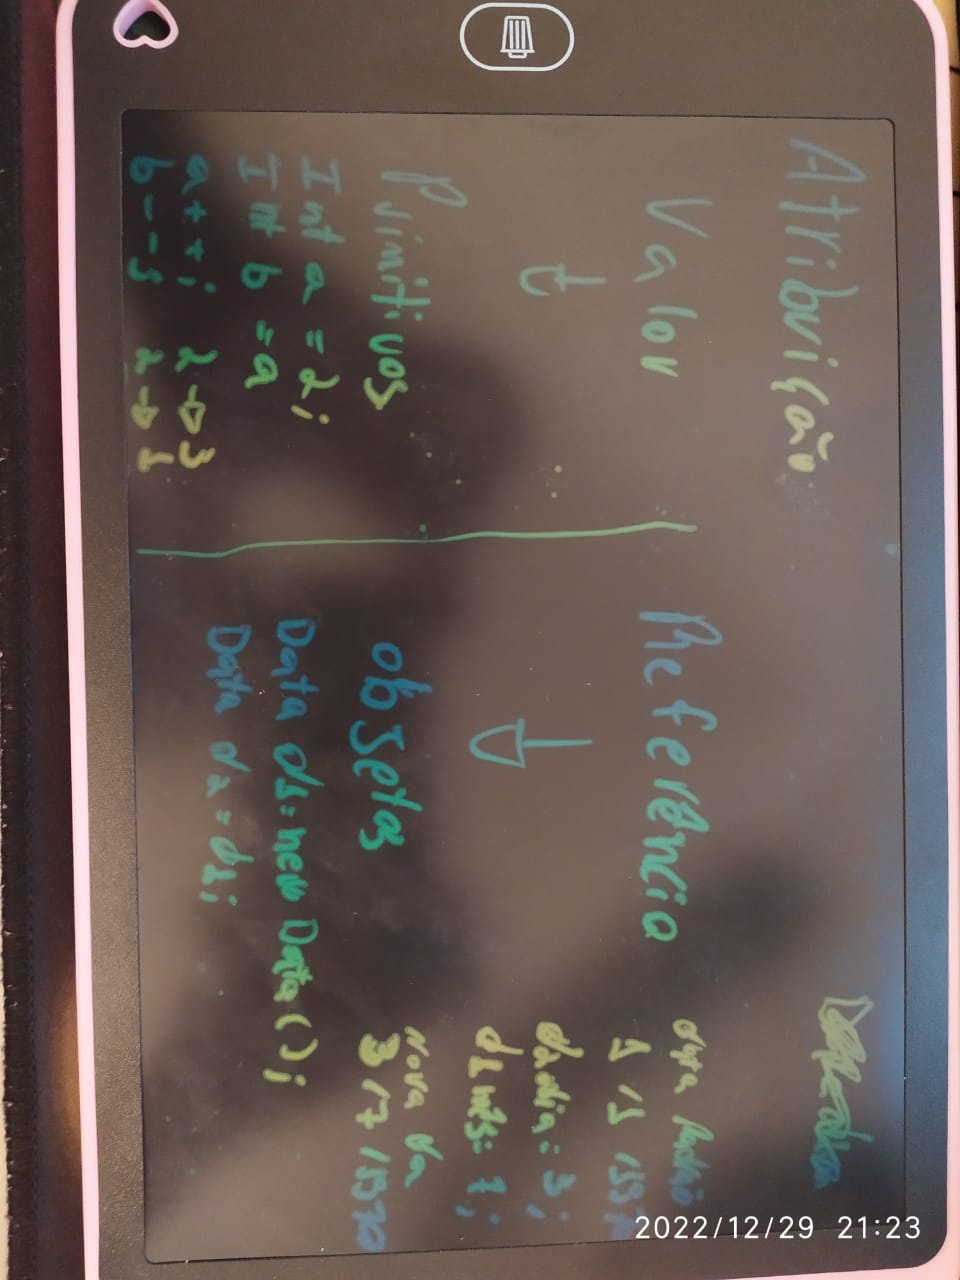 Atribuição
Valor
Primitivos
Int a = 2;
Int b = a
a++; 2 → 3
b-- 2 → 1
Referência
objetos
Data d1 = new Data();
Data d2 = d1;
data Padrão
1/1/197
d2 dia = 3;
d1 mês = 7;
Nova da
3/7/1970
2022/12/29 21:23